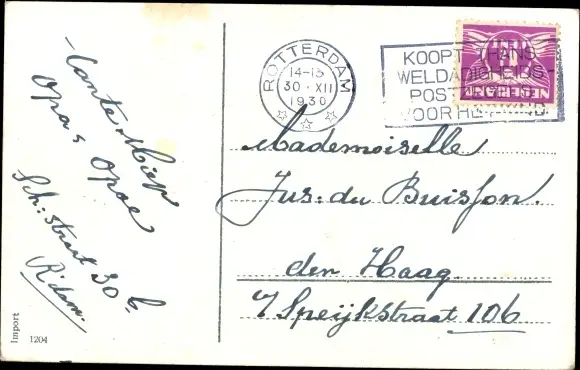 Tante Miep
Opa & Opoe
Sch: straat 30 b.
R'dam.
Import
1204
ROTTERDAM
14-15
30·XII
1930
KOOPT THANS
WELDADIGHEIDS-
POST
VOOR
NEDERLAND
Mademoiselle
Jus. du Buisson.
den Haag.
v Speijkstraat 106